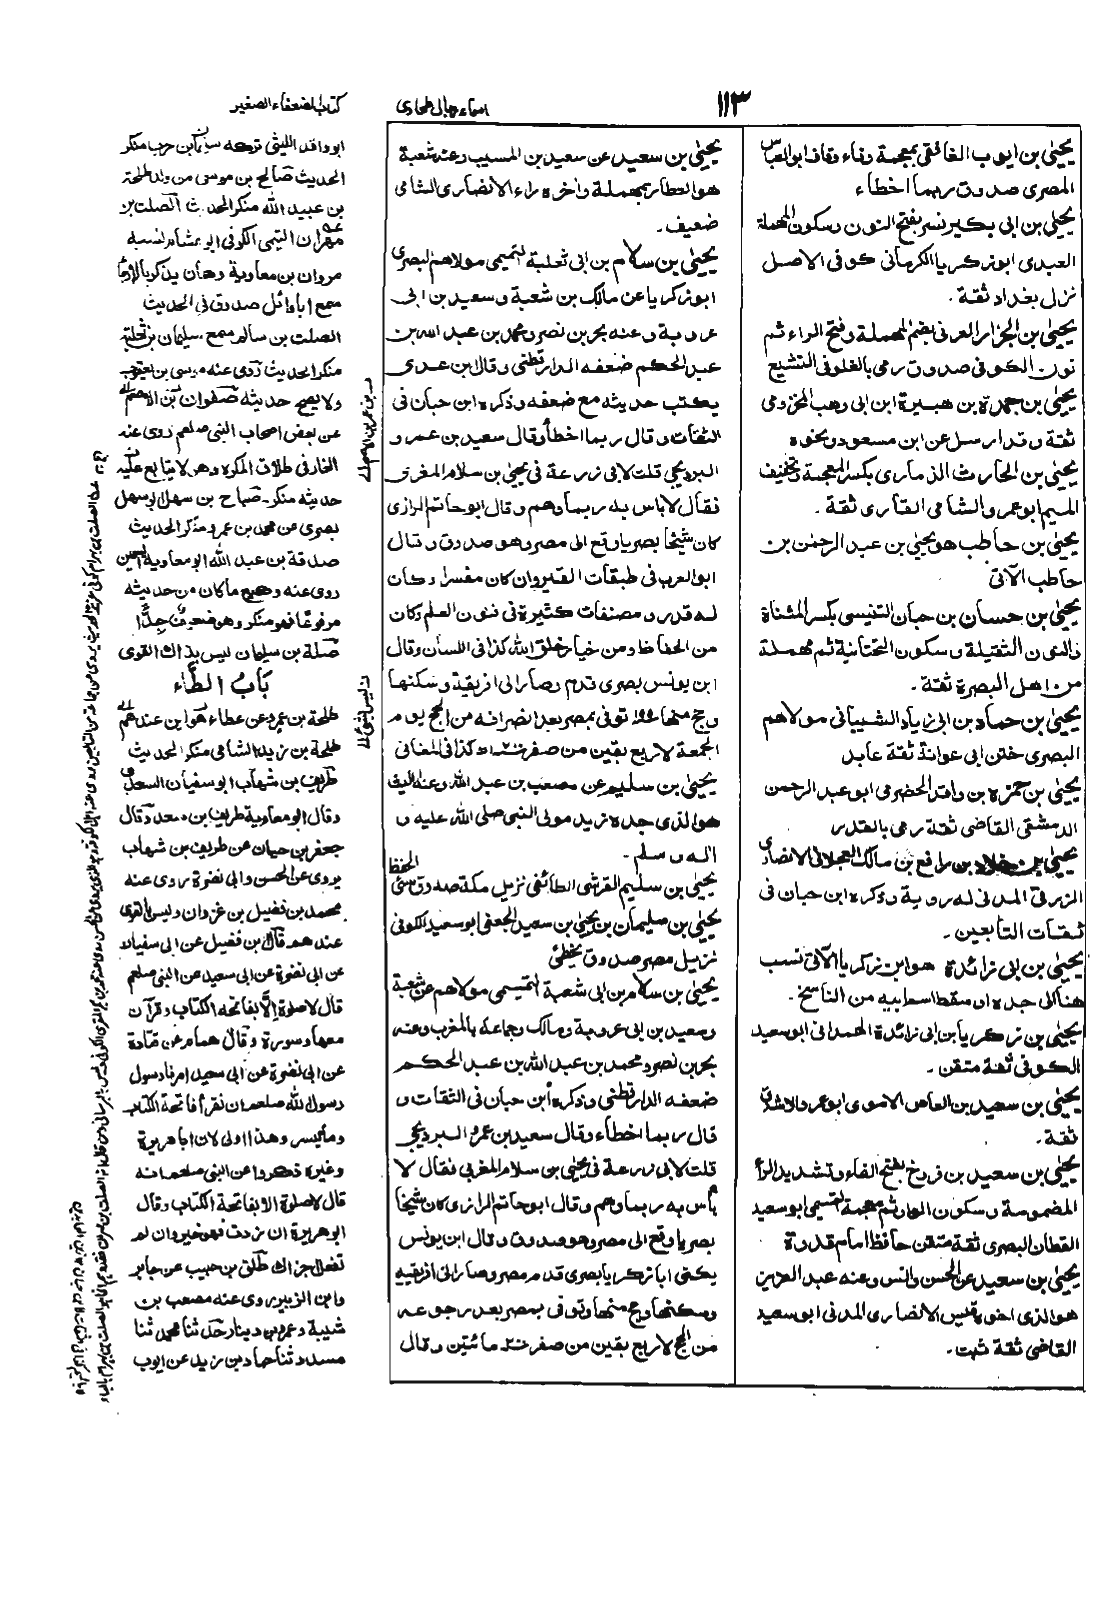 ١١٣
اسماء رجال طحاوى
كتاب الضعفاء الصغير
يحيىٰ بن ايوب الغافقى بمعجمة وفاء وقاف ابو العباس
المصرى صدوق ربما اخطاء
يحيىٰ بن ابى بكير نسر بفتح النون وسكون المهملة
العبدى ابو زكريا الكرمانى كوفى الاصل
نزل بغداد ثقة۔
يحيىٰ بن الجزار العرنى بضم المهملة وفتح الراء ثم
نون الكوفى صدوق رمى بالغلو فى التشيع
يحيىٰ بن جعدة بن هبيرة ابن ابى وهب المخزومى
ثقة وقد ارسل عن ابن مسعود ونحوه
يحيىٰ بن الحارث الذمارى بكسر المعجمة وتخفيف
الميم ابو عمرو الشامى القارى ثقة۔
يحيىٰ بن حاطب هو يحيىٰ بن عبد الرحمٰن بن
حاطب الآتى
يحيىٰ بن حسان بن حبان التنيسى بكسر المثناة
والنون الثقيلة وسكون التحتانية ثم مهملة
من اهل البصرة ثقة۔
يحيىٰ بن حماد بن ابى زياد الشيبانى مولاهم
البصرى ختن ابى عوانة ثقة عابد
يحيىٰ بن حمزه بن واقد الحضرمى ابو عبد الرحمن
الدمشقى القاضى ثقة رمى بالقدر
يحيىٰ بن خلاد بن رافع بن مالك العجلانى الانصارى
الزرقى المدنى له روية وذكره ابن حبان فى
ثقات التابعين۔
يحيىٰ بن ابى زائدة هو ابن زكريا الآتى نسب
هنا الى جده او سقط اسم ابيه من الناسخ۔
يحيىٰ بن زكريا بن ابى زائدة الهمدانى ابو سعيد
الكوفى ثقة متقن۔
يحيىٰ بن سعيد بن العاص الاموى ابو عمرو الاشدق
ثقة۔
يحيىٰ بن سعيد بن فروخ بفتح الفاء وتشديد الراء
المضمومة وسكون الواو ثم معجمة التميمى ابو سعيد
القطان البصرى ثقة متقن حافظ امام قدوة
يحيىٰ بن سعيد عن الحسن وانس وعنه عبد العزيز
هو الذى اخو قيس الانصارى المدنى ابو سعيد
القاضى ثقة ثبت۔
يحيىٰ بن سعيد عن سعيد بن المسيب وعنه شعبة
هو العطار بمهملة واخره راء الانصارى الشامى
ضعيف۔
يحيىٰ بن سلام بن ابى ثعلبة التميمى مولاهم البصرى
ابو زكريا عن مالك بن شعبة وسعيد بن ابى
عروبة وعنه بحر بن نصر ومحمد بن عبد الله بن
عبد الحكم ضعفه الدارقطنى وقال ابن عدى
يكتب حديثه مع ضعفه وذكره ابن حبان فى
الثقات وقال ربما اخطأ وقال سعيد بن عمرو
البردیجى قلت لابى زرعة فى يحيىٰ بن سلام المغربى
فقال لاباس به ربما وهم وقال ابو حاتم الرازى
كان شيخا بصريا وقع الى مصر وهو صدوق وقال
ابو العرب فى طبقات القيروان كان مفسرا وكان
له قدر ومصنفات كثيرة فى فنون العلم وكان
من الحفاظ ومن خيار خلق الله كذا فى اللسان وقال
ابن يونس بصرى قدم وصار الى افريقية وسكنها
وحج منها توفى بمصر بعد انصرافه من الحج يوم
الجمعة لاربع بقين من صفر سنة كذا فى المغانى
يحيىٰ بن سليم عن مصعب بن عبد الله وعنه الليث
هو الذى جده زيد مولى النبى صلى الله عليه و
اله وسلم۔
يحيىٰ بن سليم القرشى الطائفى نزيل مكة صدوق سئ
الحفظ
يحيىٰ بن سليمان بن يحيىٰ بن سعيد الجعفى ابو سعيد الكوفى
نزيل مصر صدوق يخطئ
يحيىٰ بن سلام بن ابى شعبة التميمى مولاهم عن شعبة
وسعيد بن ابى عروبة ومالك وجماعة بالمغرب وعنه
بحر بن نصر ومحمد بن عبد الله بن عبد الحكم
ضعفه الدارقطنى وذكره ابن حبان فى الثقات و
قال ربما اخطاء وقال سعيد بن عمرو البردیجى
قلت لابى زرعة فى يحيىٰ بن سلام المغربى فقال لا
بأس به ربما وهم وقال ابو حاتم الرازى كان شيخا
بصريا وقع الى مصر وهو صدوق وقال ابن يونس
يكنى ابا زكريا بصرى قدم مصر وصار الى افريقيه
وسكنها وحج منها وتوفى بمصر بعد رجوعه
من الحج لاربع بقين من صفر سنة مائتين وقال
ابو واقد الليثى تركه سليمان بن حرب منكر
الحديث صالح بن موسى من ولد طلحة
بن عبيد الله منكر الحديث الصلت بن
مهران التيمى الكوفى ابو هشام نسبه
مروان بن معاوية وكان يذكر بالارجاء
سمع ابا وائل صدوق فى الحديث
الصلت بن سالم سمع سليمان بن
منكر الحديث روى عنه موسى بن يعقوب
ولا يصح حديثه صفوان بن الاصم
عن بعض اصحاب النبى صلعم روى عنه
الغاز فى طلاق المكره وهو لا يتابع عليه
حديثه منكر۔ صباح بن سهل ابو سهل
بصرى عن محمد بن عمرو منكر الحديث
صدقة بن عبد الله ابو معاوية السمين
روى عنه وكيع ما كان من حديثه
مرفوعًا فهو منكر وهو ضعيف جدًّا
صلة بن سليمان ليس بذاك القوى
بَابُ الطَّاء
طلحة بن عمرو عن عطاء هو لين عندهم
طلحة بن زيد الشامى منكر الحديث
طريف بن شهاب ابو سفيان السعدى
وقال ابو معاوية طريف بن سعد وقال
جعفر بن حيان عن طريف بن شهاب
يروى عن الحسن وابى نضرة روى عنه
محمد بن فضيل بن غزوان وليس بالقوى
عندهم قال بن فضيل عن ابى سفيان
عن ابى نضرة عن ابى سعيد عن النبى صلعم
قال لاصلوة الّا بفاتحة الكتاب وقرآن
معها وسورة وقال همام عن قتادة
عن ابى نضرة عن ابى سعيد امرنا رسول
رسول الله صلعم ان نقرأ فاتحة الكتاب
وما تيسر وهذا اولى لان ابا هريرة
وغيره ذكروا عن النبى صلعم انه
قال لاصلوة الا بفاتحة الكتاب وقال
ابو هريرة ان زدت فهو خير وان لم
تفعل اجزاك طلق بن حبيب عن جابر
وابن الزبير روى عنه مصعب بن
شيبة وعمرو بن دينار حدثنا محمد ثنا
مسدد ثنا حماد بن زيد عن ايوب